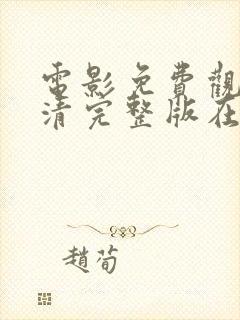 電影免費觀
清完整版在
趙荀